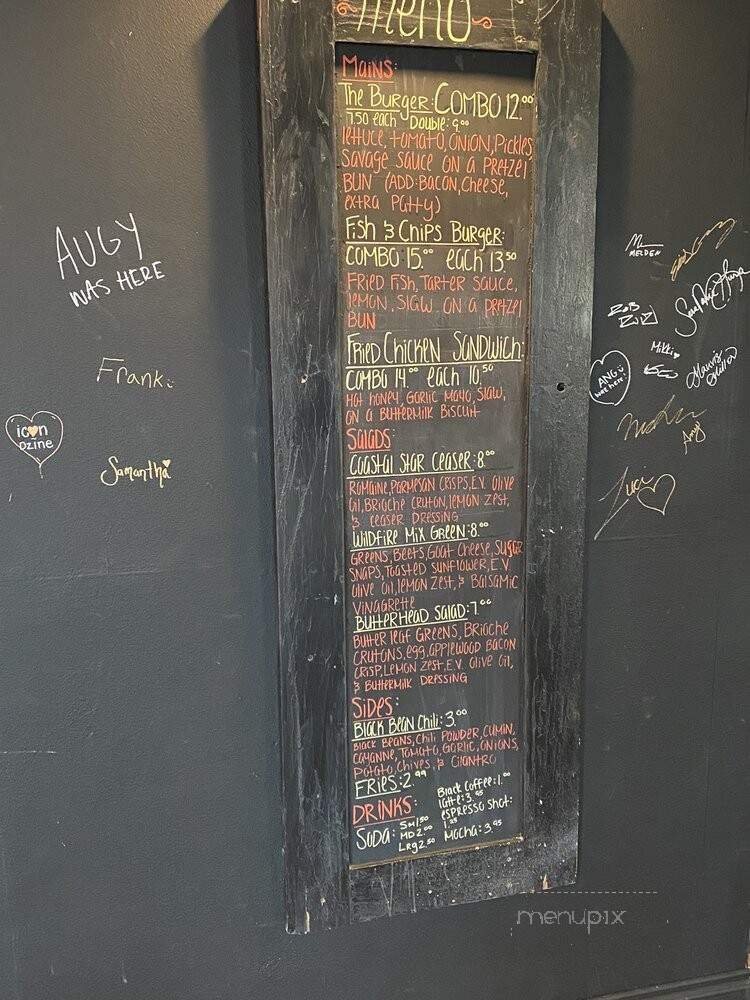 Menu
Mains:
The Burger: COMBO 12.00
7.50 each Double: 9.00
lettuce, tomato, onion, Pickles
Savage Sauce on a Pretzel
Bun (ADD: Bacon, Cheese,
extra Patty)
Fish & Chips Burger:
COMBO 15.00 each 13.50
Fried Fish, Tarter Sauce,
lemon, Slaw on a Pretzel
Bun
Fried Chicken Sandwich:
COMBO 14.00 each 10.50
Hot Honey, Garlic Mayo, Slaw,
on a Buttermilk Biscuit
Salads:
Coastal Star Ceaser: 8.00
Romaine, Parmesan Crisps, E.V. Olive
Oil, Brioche Cruton, lemon Zest,
& Ceaser Dressing
Wildfire Mix Green: 8.00
Greens, Beets, Goat Cheese, Sugar
Snaps, Toasted Sunflower, E.V.
Olive Oil, lemon Zest, & Balsamic
Vinagrette
ButterHead Salad: 7.00
Butter leaf Greens, Brioche
Crutons, egg, applewood Bacon
Crisp, Lemon Zest, E.V. Olive Oil,
& Buttermilk Dressing
Sides:
Black Bean Chili: 3.00
Black Beans, Chili Powder, Cumin,
Cayanne, Tomato, Garlic, Onions,
Potato, Chives, & Cilantro
Fries: 2.99
Drinks:
Soda: Sm 1.50
MD 2.00
LRG 2.50
Black Coffee: 1.00
latte: 3.95
espresso Shot:
1.25
Mocha: 3.95
AUGY
WAS HERE
Frank
icon
Dzine
Samantha
MELDEN
Mikki
ANG
was here!
Amy
Luci
menupix